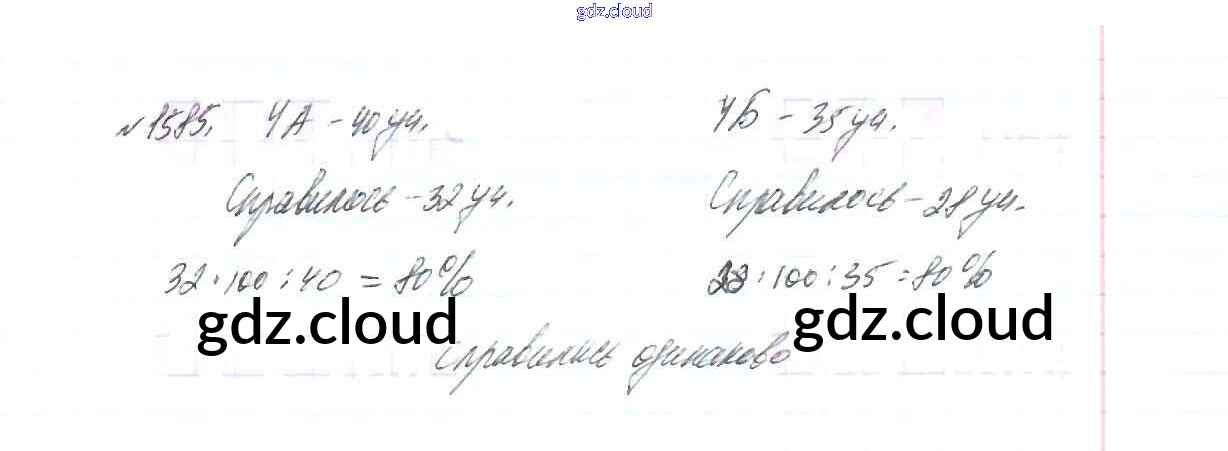 gdz.cloud
№1585. 4А - 40 уч. 4Б - 35 уч.
Справилось - 32 уч. Справилось - 28 уч.
32 · 100 : 40 = 80% 28 · 100 : 35 = 80%
gdz.cloud gdz.cloud
Справились одинаково